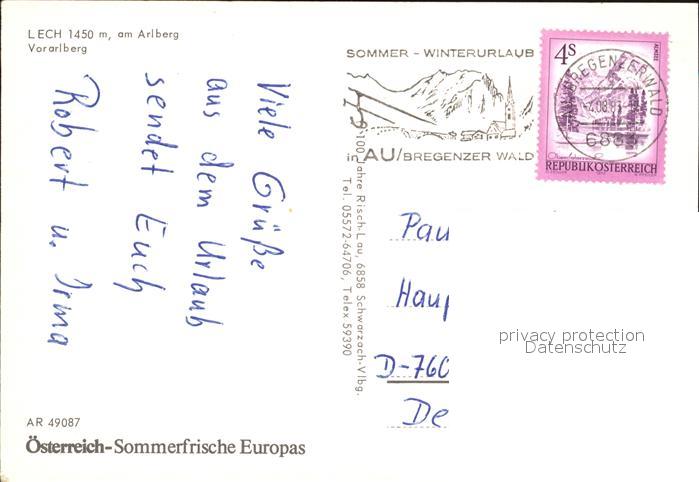 LECH 1450 m, am Arlberg
Vorarlberg
Viele Grüße
aus dem Urlaub
sendet Euch
Robert u. Irma
AR 49087
Österreich-Sommerfrische Europas
100 Jahre Risch-Lau, 6858 Schwarzach-Vlbg.
Tel. 05572-64706, Telex 59390
SOMMER - WINTERURLAUB
in AU/BREGENZER WALD
4S
BREGENZERWALD
REPUBLIK ÖSTERREICH
Pau
Hau
D-760
De
privacy protection
Datenschutz